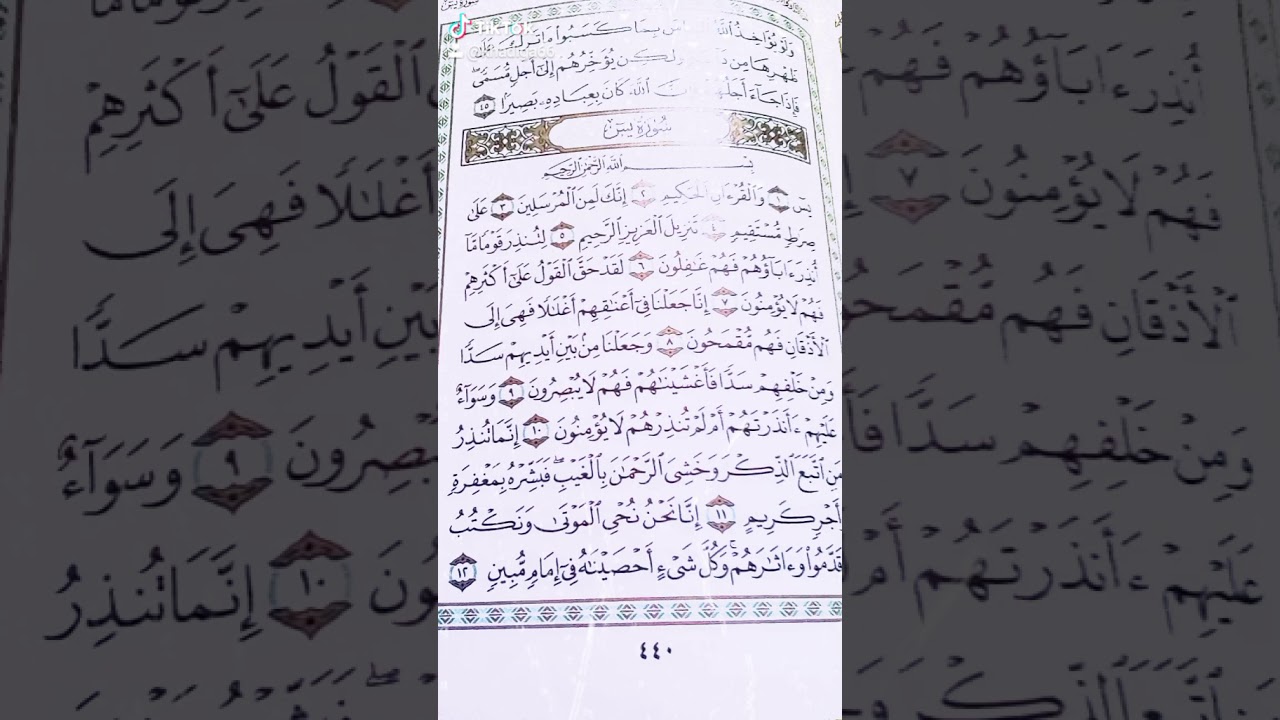 TikTok
وَلَوْ يُؤَاخِذُ ٱللَّهُ ٱلنَّاسَ بِمَا كَسَبُوا۟ مَا تَرَكَ
ظَهْرِهَا مِن وَلَـٰكِن يُؤَخِّرُهُمْ إِلَىٰٓ أَجَلٍ مُّسَمًّى ۖ
فَإِذَا جَآءَ أَجَلُهُمْ ٱللَّهَ كَانَ بِعِبَادِهِۦ بَصِيرًۢا ٤٥
سُورَةُ يسٓ
بِسْمِ ٱللَّهِ ٱلرَّحْمَـٰنِ ٱلرَّحِيمِ
يسٓ ١ وَٱلْقُرْءَانِ ٱلْحَكِيمِ ٢ إِنَّكَ لَمِنَ ٱلْمُرْسَلِينَ ٣ عَلَىٰ
صِرَٰطٍ مُّسْتَقِيمٍ ٤ تَنزِيلَ ٱلْعَزِيزِ ٱلرَّحِيمِ ٥ لِتُنذِرَ قَوْمًا مَّآ
أُنذِرَ ءَابَآؤُهُمْ فَهُمْ غَـٰفِلُونَ ٦ لَقَدْ حَقَّ ٱلْقَوْلُ عَلَىٰٓ أَكْثَرِهِمْ
فَهُمْ لَا يُؤْمِنُونَ ٧ إِنَّا جَعَلْنَا فِىٓ أَعْنَـٰقِهِمْ أَغْلَـٰلًا فَهِىَ إِلَى
ٱلْأَذْقَانِ فَهُم مُّقْمَحُونَ ٨ وَجَعَلْنَا مِنۢ بَيْنِ أَيْدِيهِمْ سَدًّا
وَمِنْ خَلْفِهِمْ سَدًّا فَأَغْشَيْنَـٰهُمْ فَهُمْ لَا يُبْصِرُونَ ٩ وَسَوَآءٌ
عَلَيْهِمْ ءَأَنذَرْتَهُمْ أَمْ لَمْ تُنذِرْهُمْ لَا يُؤْمِنُونَ ١٠ إِنَّمَا تُنذِرُ
مَنِ ٱتَّبَعَ ٱلذِّكْرَ وَخَشِىَ ٱلرَّحْمَـٰنَ بِٱلْغَيْبِ ۖ فَبَشِّرْهُ بِمَغْفِرَةٍ
وَأَجْرٍ كَرِيمٍ ١١ إِنَّا نَحْنُ نُحْىِ ٱلْمَوْتَىٰ وَنَكْتُبُ
قَدَّمُوا۟ وَءَاثَـٰرَهُمْ ۚ وَكُلَّ شَىْءٍ أَحْصَيْنَـٰهُ فِىٓ إِمَامٍ مُّبِينٍ ١٢
٤٤٠